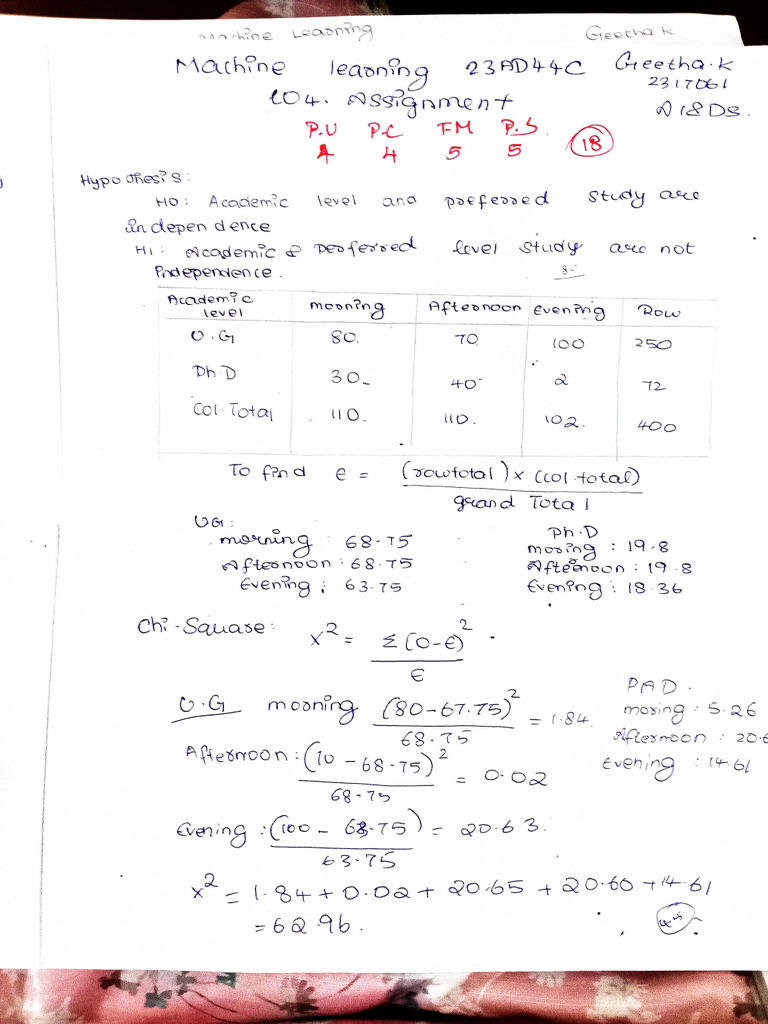 Machine Learning Geetha K
Machine learning 23AD44C Geetha.K
2317061
LO4. Assignment AI&DS.
P.U P.C T.M P.S
4 4 5 5 18
Hypothesis:
H0: Academic level and preferred study are
independence
H1: Academic & Perferred level study are not
Independence.
Academic level Morning Afternoon Evening Row
U.G 80. 70 100 250
Ph.D 30 40 2 72
Col.Total 110. 110. 102. 400
To find E = (row total) x (col.total)
grand Total
UG: Ph.D
morning : 68.75 moring : 19.8
Afternoon : 68.75 Afternoon : 19.8
Evening : 63.75 Evening : 18.36
Chi-Square: x2 = Σ(O-E)2
E
U.G morning (80-67.75)2 = 1.84.
68.75
PAD.
moring : 5.26
Afternoon : 20.6
Evening : 14.61
Afternoon : (10-68.75)2 = 0.02
68.75
Evening : (100 - 68.75) = 20.63.
63.75
x2 = 1.84 + 0.02 + 20.65 + 20.60 + 14.61
= 62.96.